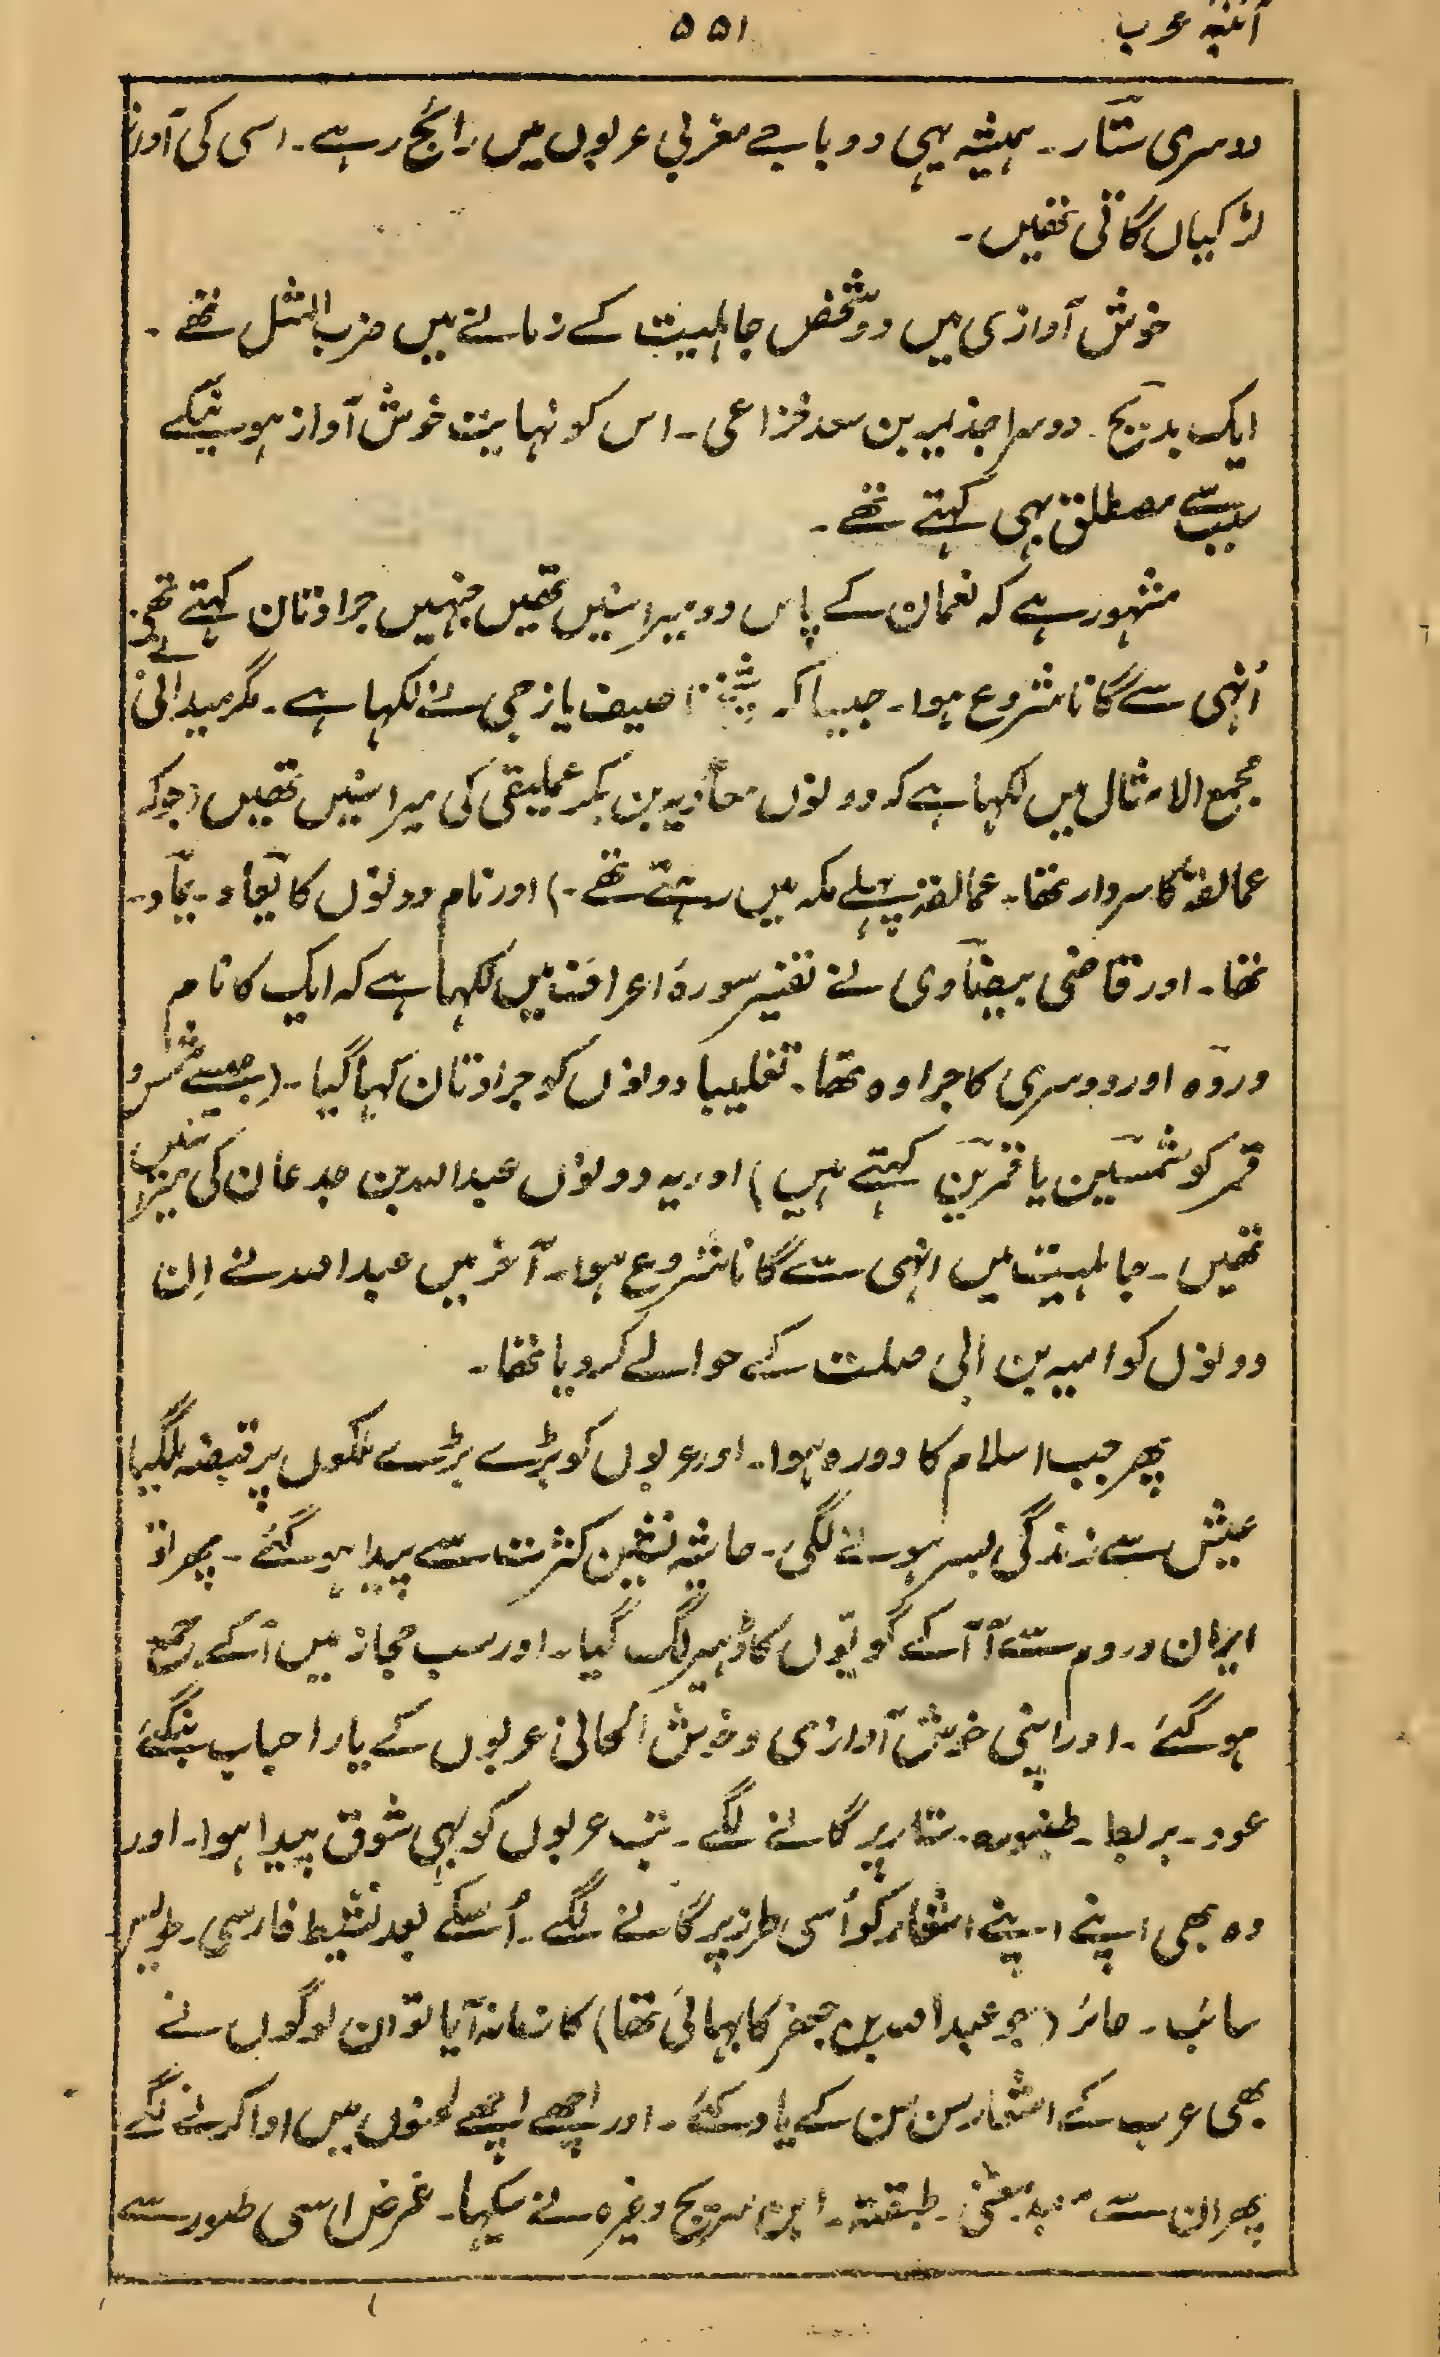 آئینہ عرب
۵۵۱
دوسری ستار۔ ہمیشہ یہی دو باجے مغربی عربوں میں رائج رہے۔ اسی کی آواز
لڑکیاں گاتی تھیں۔
خوش آوازی میں دو شخص جاہلیت کے زمانے میں ضرب المثل تھے۔
ایک بدیح۔ دوسرا جذیر بن سعد خزاعی۔ اس کو نہایت خوش آواز ہونیکے
سبب سے مصطلق بہی کہتے تھے۔
مشہور ہے کہ نعمان کے پاس دو میراسنیں تھیں جنہیں جرادتان کہتے تھے
اُنہی سے گانا شروع ہوا۔ جیسا کہ شیخ ناصیف یازجی نے لکہا ہے۔ مگر میدانی نے
مجمع الامثال میں لکہا ہے کہ دونوں معاویہ بن بکر عملیقی کی میراسنیں تھیں (جو کہ
عمالقہ کا سردار تھا۔ عمالقہ پہلے مکہ میں رہتے تھے۔) اور نام دونوں کا یعاد۔ یماد۔
تھا۔ اور قاضی بیضاوی نے تفسیر سورۂ اعراف میں لکہا ہے کہ ایک کا نام
وردہ اور دوسری کا جرادہ تھا۔ تغلیبا دونوں کو جرادتان کہا گیا۔ (جیسے شمس و
قمر کو شمسین یا قمرین کہتے ہیں) اور یہ دونوں عبداللہ بن جدعان کی میراسنیں
تھیں۔ جاہلیت میں انہی سے گانا شروع ہوا۔ آخر میں عبداللہ نے اِن
دونوں کو امیہ بن ابی صلت کے حوالے کر دیا تھا۔
پھر جب اسلام کا دورہ ہوا۔ اور عربوں کو بڑے بڑے ملکوں پر قبضہ ملگیا
عیش سے زندگی بسر ہونے لگی۔ حاشیہ نشین کثرت سے پیدا ہو گئے۔ پھر تو
ایران و روم سے آ آ کے گویّوں کا ڈہیر لگ گیا۔ اور سب حجاز میں آ کے جمع
ہو گئے۔ اور اپنی خوش آوازی و خوش الحانی عربوں کے یار احباب بنگئے
عود۔ بربط۔ طنبورہ۔ ستار پر گانے لگے۔ تب عربوں کو بہی شوق پیدا ہوا۔ اور
وہ بھی اپنے اپنے اشعار کو اُسی طرز پر گانے لگے۔ اُسکے بعد نشیط فارسی۔ طویس
سائب۔ حائر (جو عبداللہ بن جعفر کا بہائی تھا) کا زمانہ آیا تو ان لوگوں نے
بھی عرب کے اشعار سن سن کے یاد کئے۔ اور اچھے اچھے لحنوں میں ادا کرنے لگے
پھر ان سے معبد مغنی۔ طبقتہ۔ ابن سریج وغیرہ نے سیکہا۔ غرض اسی طور سے